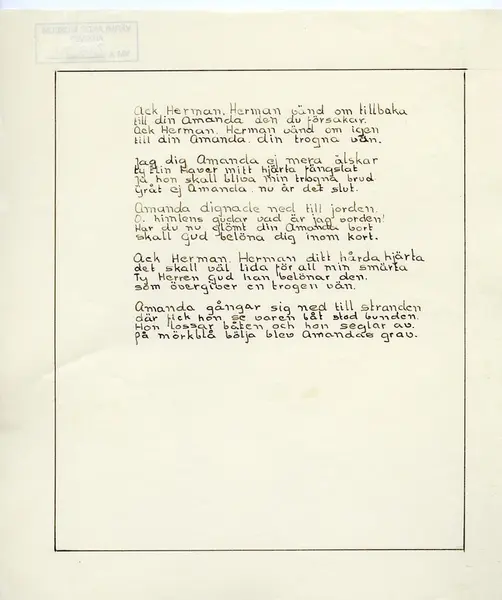 Ack Herman, Herman vänd om tillbaka
till din Amanda den du försakar.
Ack Herman, Herman vänd om igen
till din Amanda, din trogna vän.
Jag dig Amanda ej mera älskar
ty Elin haver mitt hjärta fängslat
ja hon skall bliva min trogna brud
Gråt ej Amanda nu är det slut.
Amanda dignade ned till jorden.
O, himlens gudar vad är jag vorden!
Har du nu glömt din Amanda bort
skall Gud belöna dig inom kort.
Ack Herman, Herman ditt hårda hjärta
det skall väl lida för all min smärta
Ty Herren Gud han belönar den.
som övergiver en trogen vän.
Amanda gångar sig ned till stranden
där fick hon se varen båt stod bunden.
Hon lossar båten och hon seglar av.
på mörkblå bölja blev Amandas grav.